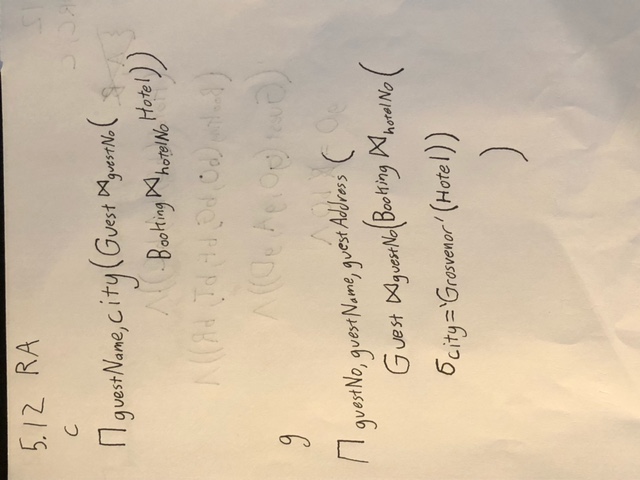 5.12 RA
c
Π guestName, city (Guest ⋈guestNo(
Booking ⋈hotelNo Hotel))
g
Π guestNo, guestName, guestAddress (
Guest ⋈guestNo(Booking ⋈hotelNo (
σcity='Grosvenor' (Hotel))
)